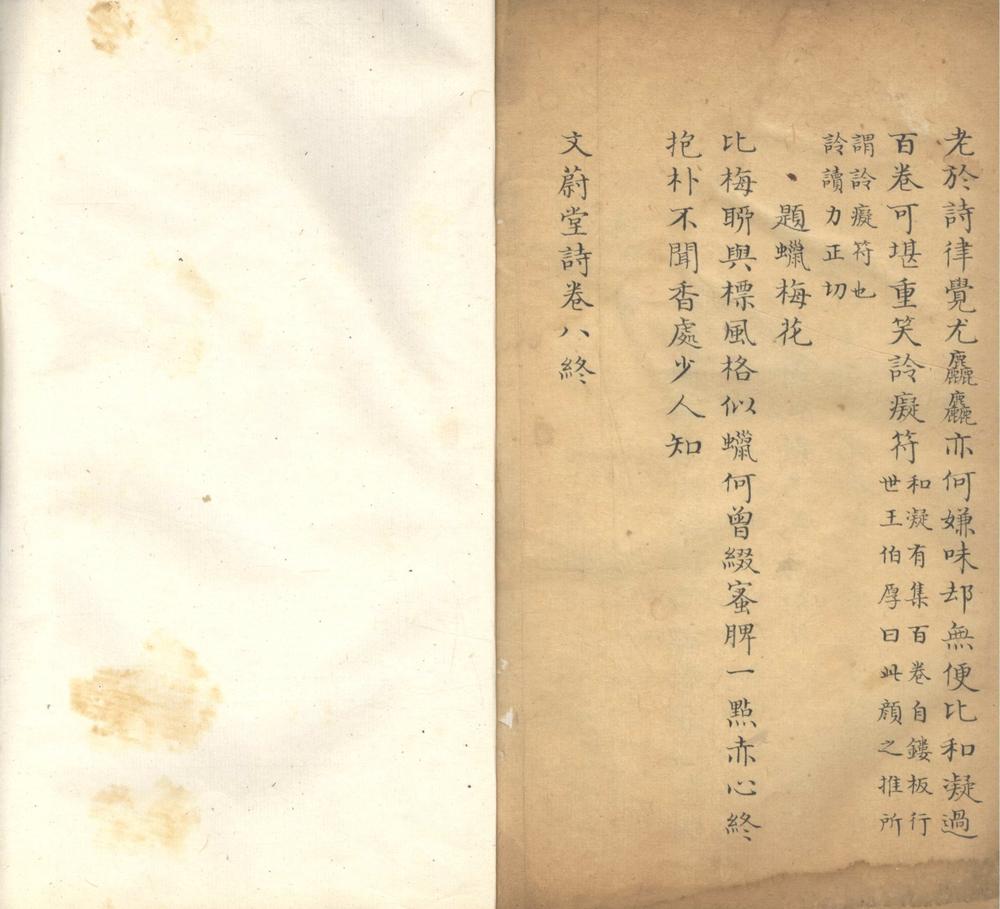 老於詩律覺尤麤麤亦何嫌味却無便比和凝過
百卷可堪重笑詅癡符和凝有集百卷自鏤板行
世王伯厚曰此顔之推所
謂詅癡符也
詅讀力正切
、題蠟梅花
比梅聊與標風格似蠟何曾綴蜜脾一點赤心終
抱朴不聞香處少人知
文蔚堂詩卷八終